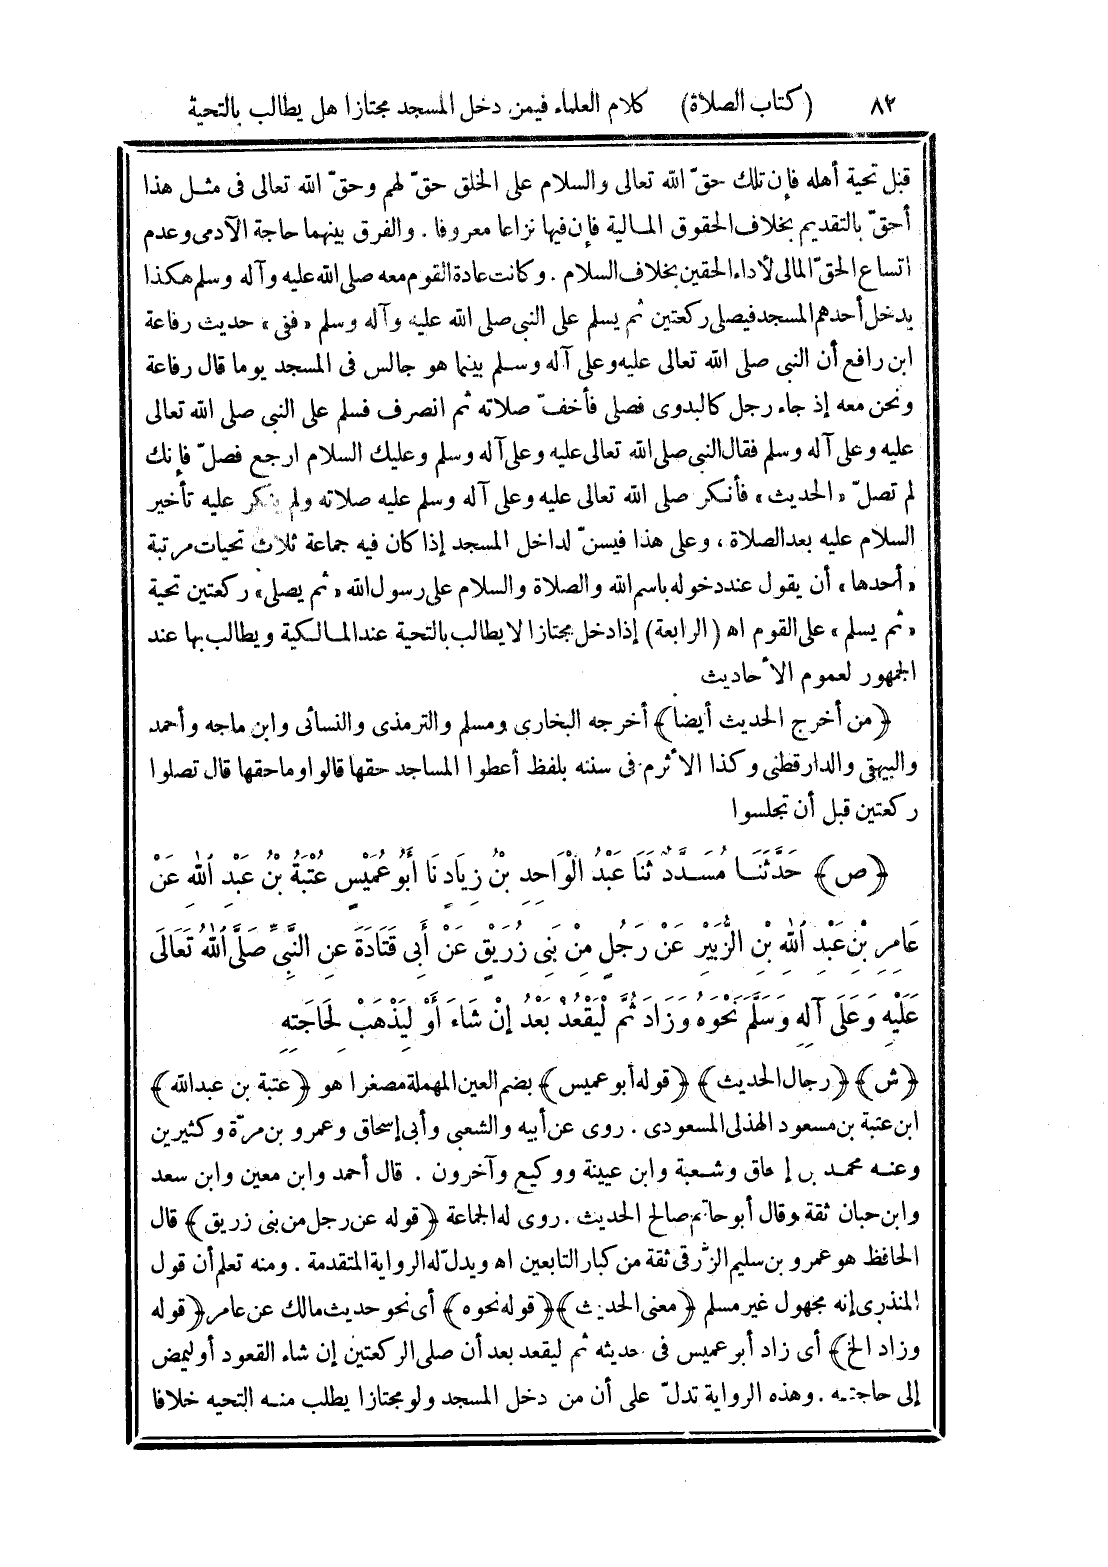 ٨٢ (كتاب الصلاة) كلام العلماء فيمن دخل المسجد مجتازا هل يطالب بالتحية
قبل تحية أهله فإن تلك حقّ الله تعالى والسلام على الخلق حقّ لهم وحقّ الله تعالى فى مثل هذا
أحقّ بالتقديم بخلاف الحقوق المالية فإن فيها نزاعا معروفا . والفرق بينهما حاجة الآدمى وعدم
اتساع الحقّ المالى لأداء الحقين بخلاف السلام . وكانت عادة القوم معه صلى الله عليه وآله وسلم هكذا
يدخل أحدهم المسجد فيصلى ركعتين ثم يسلم على النبى صلى الله عليه وآله وسلم «ففى» حديث رفاعة
ابن رافع أن النبى صلى الله تعالى عليه وعلى آله وسلم بينما هو جالس فى المسجد يوما قال رفاعة
ونحن معه إذ جاء رجل كالبدوى فصلى فأخفّ صلاته ثم انصرف فسلم على النبى صلى الله تعالى
عليه وعلى آله وسلم فقال النبى صلى الله تعالى عليه وعلى آله وسلم وعليك السلام ارجع فصلّ فإنك
لم تصلّ «الحديث» فأنكر صلى الله تعالى عليه وعلى آله وسلم عليه صلاته ولم ينكر عليه تأخير
السلام عليه بعد الصلاة ، وعلى هذا فيسنّ لداخل المسجد إذا كان فيه جماعة ثلاث تحيات مرتبة
«أحدها» أن يقول عند دخوله باسم الله والصلاة والسلام على رسول الله «ثم يصلى» ركعتين تحية
«ثم يسلم» على القوم اه (الرابعة) إذا دخل مجتازا لا يطالب بالتحية عند المالكية ويطالب بها عند
الجمهور لعموم الأحاديث
﴿من أخرج الحديث أيضا﴾ أخرجه البخارى ومسلم والترمذى والنسائى وابن ماجه وأحمد
والبيهقى والدارقطنى وكذا الأثرم فى سننه بلفظ أعطوا المساجد حقها قالوا وما حقها قال تصلوا
ركعتين قبل أن تجلسوا
﴿ص﴾ حَدَّثَنَا مُسَدَّدٌ ثَنَا عَبْدُ الْوَاحِدِ بْنُ زِيَادٍ نَا أَبُو عُمَيْسٍ عُتْبَةُ بْنُ عَبْدِ اللهِ عَنْ
عَامِرِ بْنِ عَبْدِ اللهِ بْنِ الزُّبَيْرِ عَنْ رَجُلٍ مِنْ بَنِى زُرَيْقٍ عَنْ أَبِى قَتَادَةَ عَنِ النَّبِىِّ صَلَّى اللهُ تَعَالَى
عَلَيْهِ وَعَلَى آلِهِ وَسَلَّمَ نَحْوَهُ وَزَادَ ثُمَّ لْيَقْعُدْ بَعْدُ إِنْ شَاءَ أَوْ لِيَذْهَبْ لِحَاجَتِهِ
﴿ش﴾ ﴿رجال الحديث﴾ ﴿قوله أبو عميس﴾ بضم العين المهملة مصغرا هو ﴿عتبة بن عبد الله﴾
ابن عتبة بن مسعود الهذلى المسعودى . روى عن أبيه والشعبى وأبى إسحاق وعمرو بن مرّة وكثيرين
وعنه محمد بن إسحاق وشعبة وابن عيينة ووكيع وآخرون . قال أحمد وابن معين وابن سعد
وابن حبان ثقة وقال أبو حاتم صالح الحديث . روى له الجماعة ﴿قوله عن رجل من بنى زريق﴾ قال
الحافظ هو عمرو بن سليم الزّرقى ثقة من كبار التابعين اه ويدلّ له الرواية المتقدمة . ومنه تعلم أن قول
المنذرى إنه مجهول غير مسلم ﴿معنى الحديث﴾ ﴿قوله نحوه﴾ أى نحو حديث مالك عن عامر ﴿قوله
وزاد الخ﴾ أى زاد أبو عميس فى حديثه ثم ليقعد بعد أن صلى الركعتين إن شاء القعود أو ليمض
إلى حاجته . وهذه الرواية تدلّ على أن من دخل المسجد ولو مجتازا يطلب منه التحيه خلافا